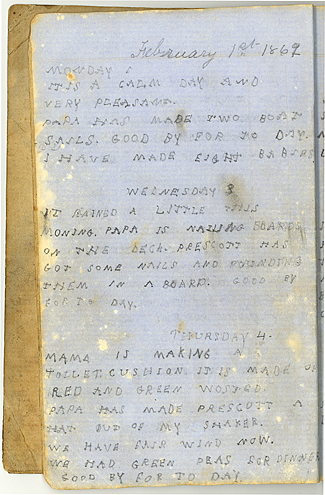 February 1st 1869
MONDAY
IT IS A CALM DAY AND
VERY PLEASANT.
PAPA HAS MADE TWO BOAT
SAILS. GOOD BY FOR TO DAY.
I HAVE MADE EIGHT
WEDNESDAY 3
IT RAINED A LITTLE THIS
MONING. PAPA IS NAILING BOARDS
ON THE DECK. PRESCOTT HAS
GOT SOME NAILS AND POUNDING
THEM IN A BOARD. GOOD BY
FOR TO DAY.
THURSDAY 4.
MAMA IS MAKING A
TOILET CUSHION. IT IS MADE OF
RED AND GREEN WOSTED.
PAPA HAS MADE PRESCOTT A
HAT OUT OF MY SHAKER.
WE HAVE FAIR WIND NOW.
WE HAD GREEN PEAS FOR DINNER
GOOD BY FOR TO DAY.